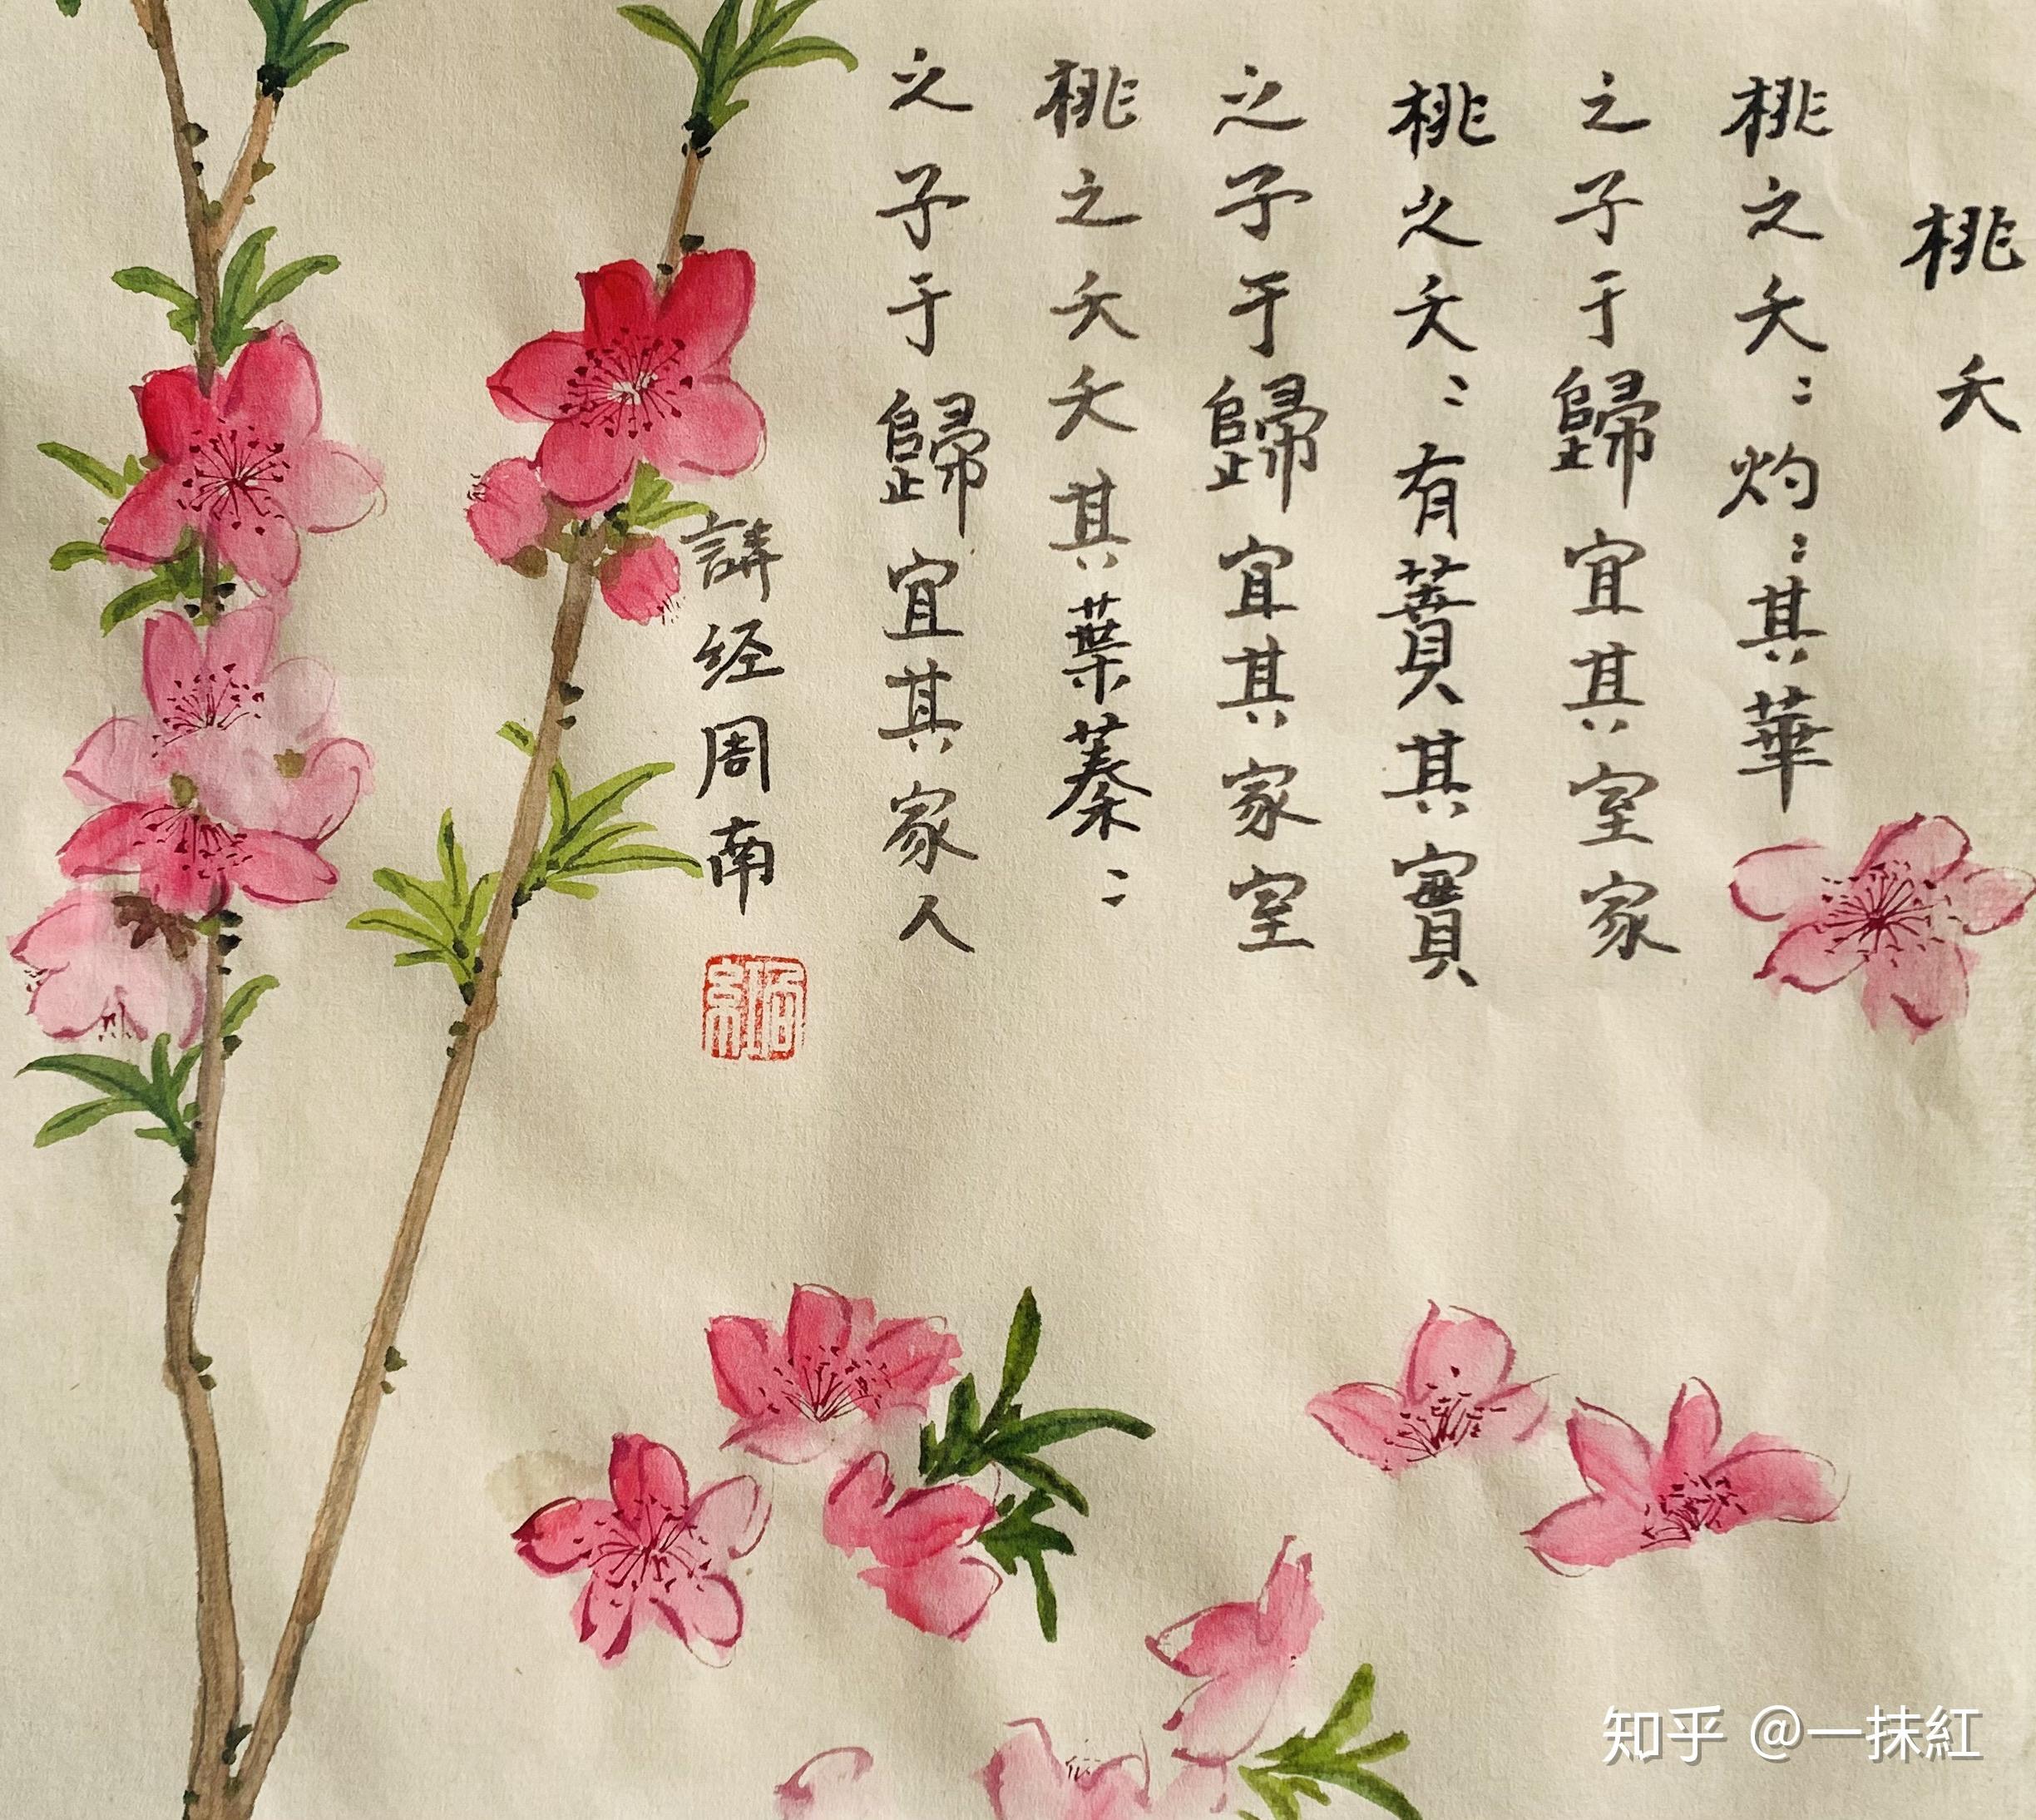 桃夭
桃之夭〻灼〻其華
之子于歸宜其室家
桃之夭〻有蕡其實
之子于歸宜其家室
桃之夭夭其葉蓁〻
之子于歸宜其家人
詩经周南
知乎 @一抹紅